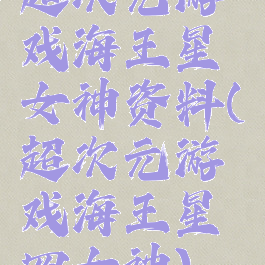 超次元游
戏海王星
女神资料(
超次元游
戏海王星
四女神)